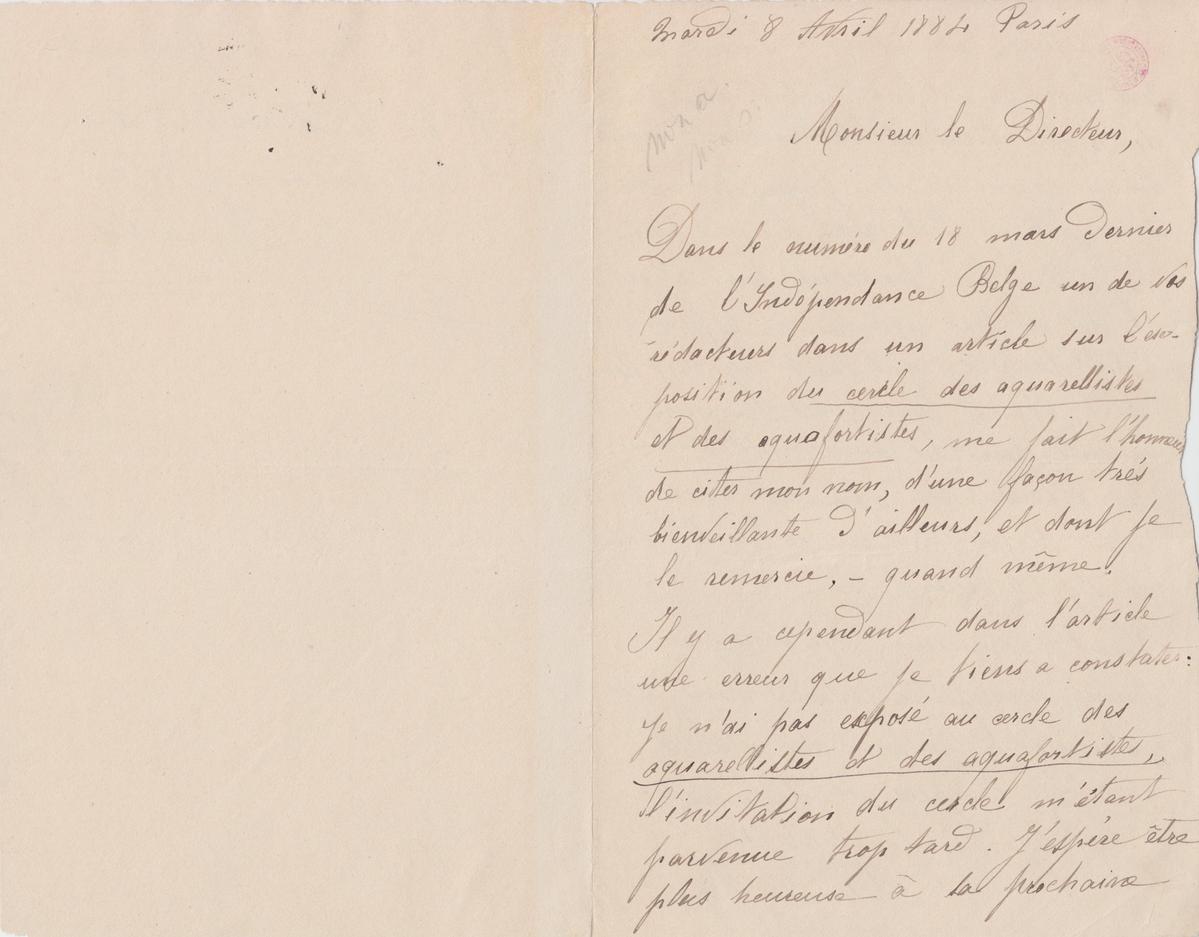 Mardi 8 Avril 1884 Paris
Monsieur le Directeur,
Dans le numéro du 18 mars dernier
de l'Indépendance Belge un de vos
rédacteurs dans un article sur l'ex-
position du cercle des aquarellistes
et des aquafortistes, me fait l'honneur
de citer mon nom, d'une façon trés
bienveillante d'ailleurs, et dont je
le remercie, - quand même.
Il y a cependant dans l'article
une erreur que je tiens a constater:
je n'ai pas exposé au cercle des
aquarellistes et des aquafortistes,
l'invitation du cercle m'étant
parvenue trop tard. J'espère être
plus heureuse à la prochaine